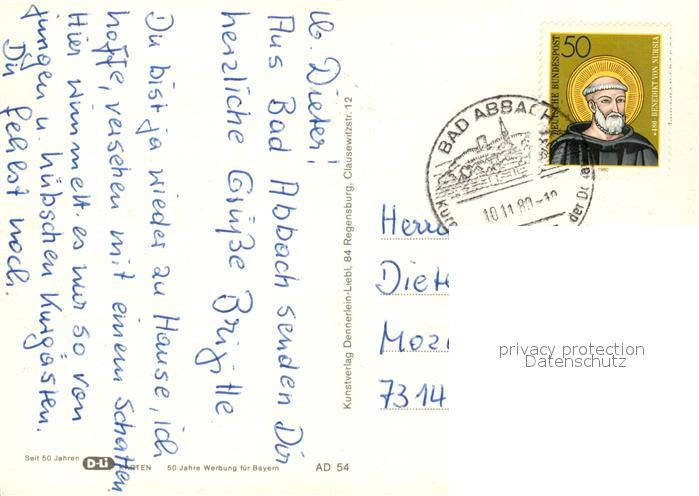 lb. Dieter!
Aus Bad Abbach senden Dir
herzliche Grüße Brigitte
Du bist ja wieder zu Hause, ich
hoffe, versehen mit einem Schatten.
Hier wimmelt es nur so von
jungen u. hübschen Kurgästen.
Du fehlst noch.
Kunstverlag Dennerlein-Liebl, 84 Regensburg, Clausewitzstr. 12
50
DEUTSCHE BUNDESPOST
*480 · BENEDIKT VON NURSIA
1980
BAD ABBACH
10.11.80-18
der Donau
Herrn
Diet
Moz
7314
privacy protection
Datenschutz
Seit 50 Jahren D-Li KARTEN 50 Jahre Werbung für Bayern AD 54